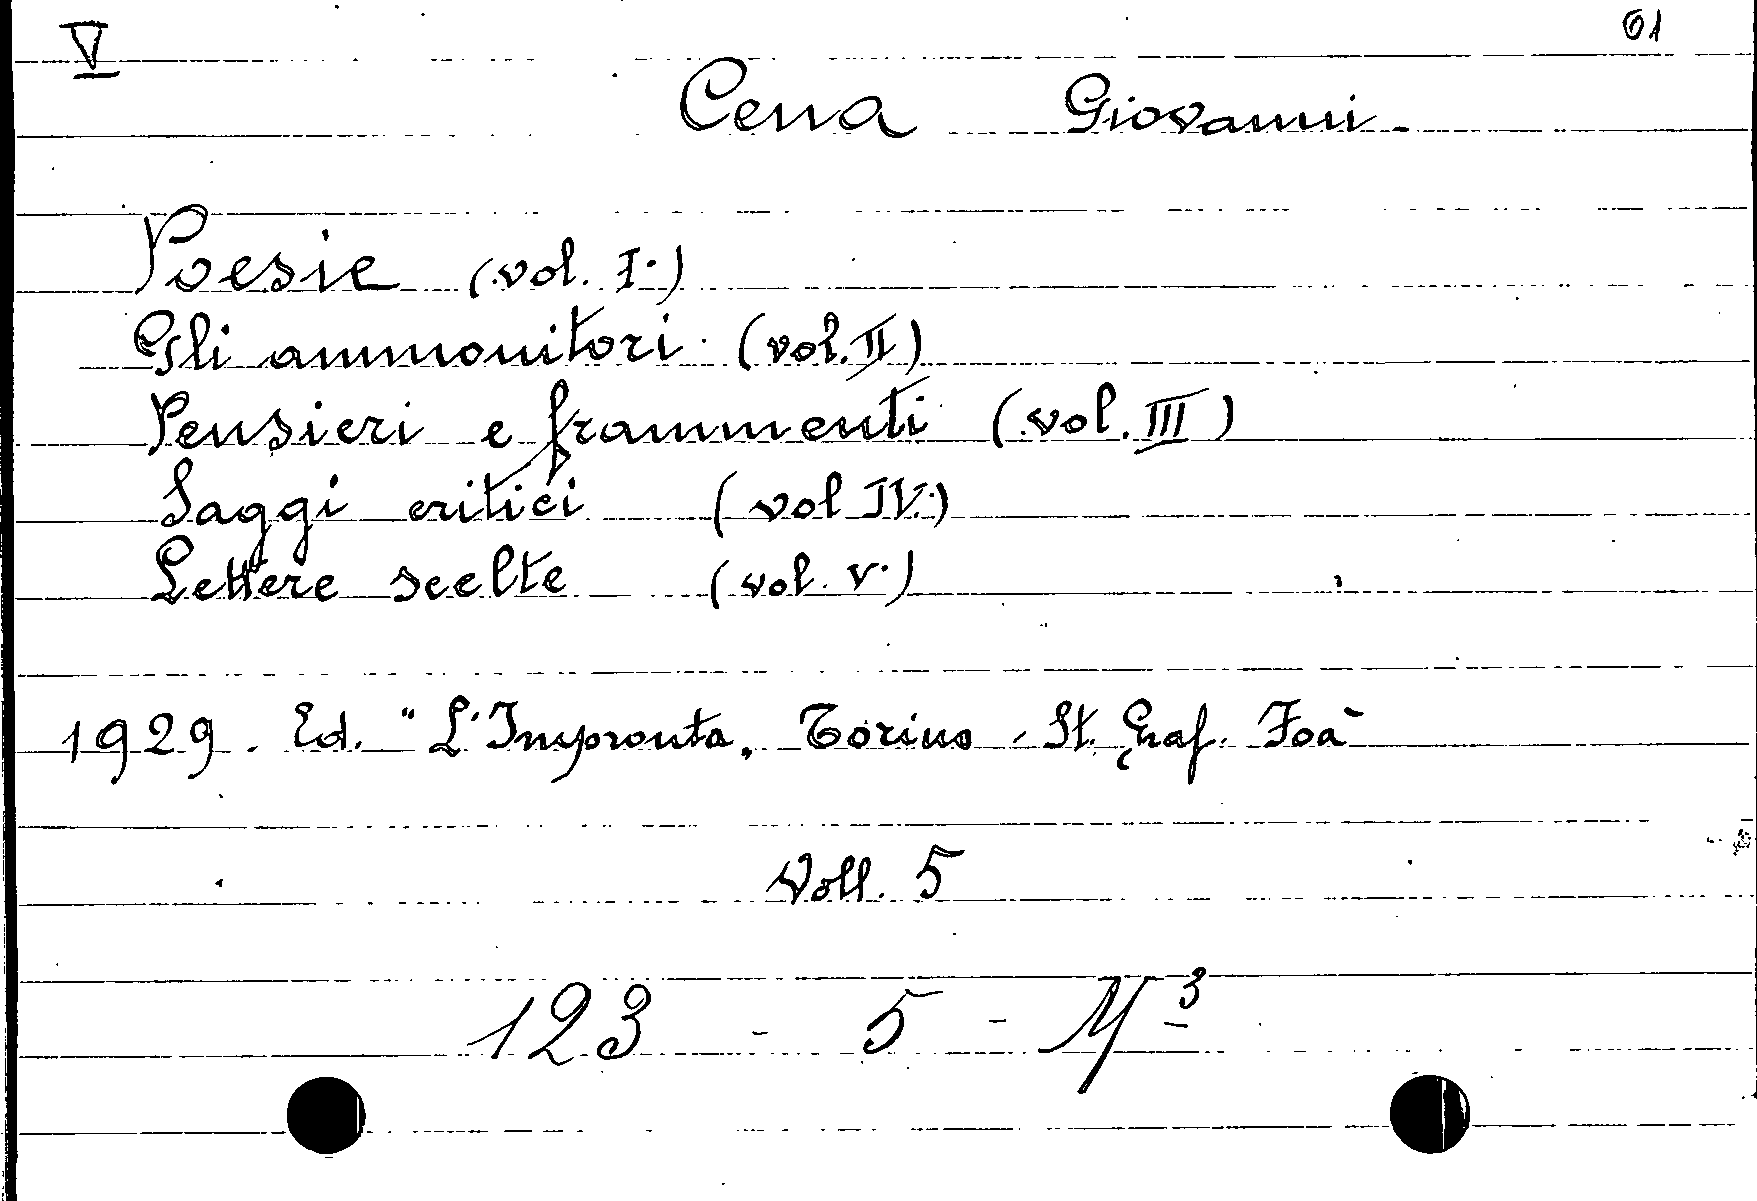 V 01
Cena Giovanni.
Poesie (vol. I.)
Gli ammonitori. (vol. II)
Pensieri e frammenti (vol. III)
Saggi critici (vol IV.)
Lettere scelte (vol. V.)
1929. Ed. "L'Impronta" Torino - St. Graf. Foà
Voll. 5
123 - 5 - M³